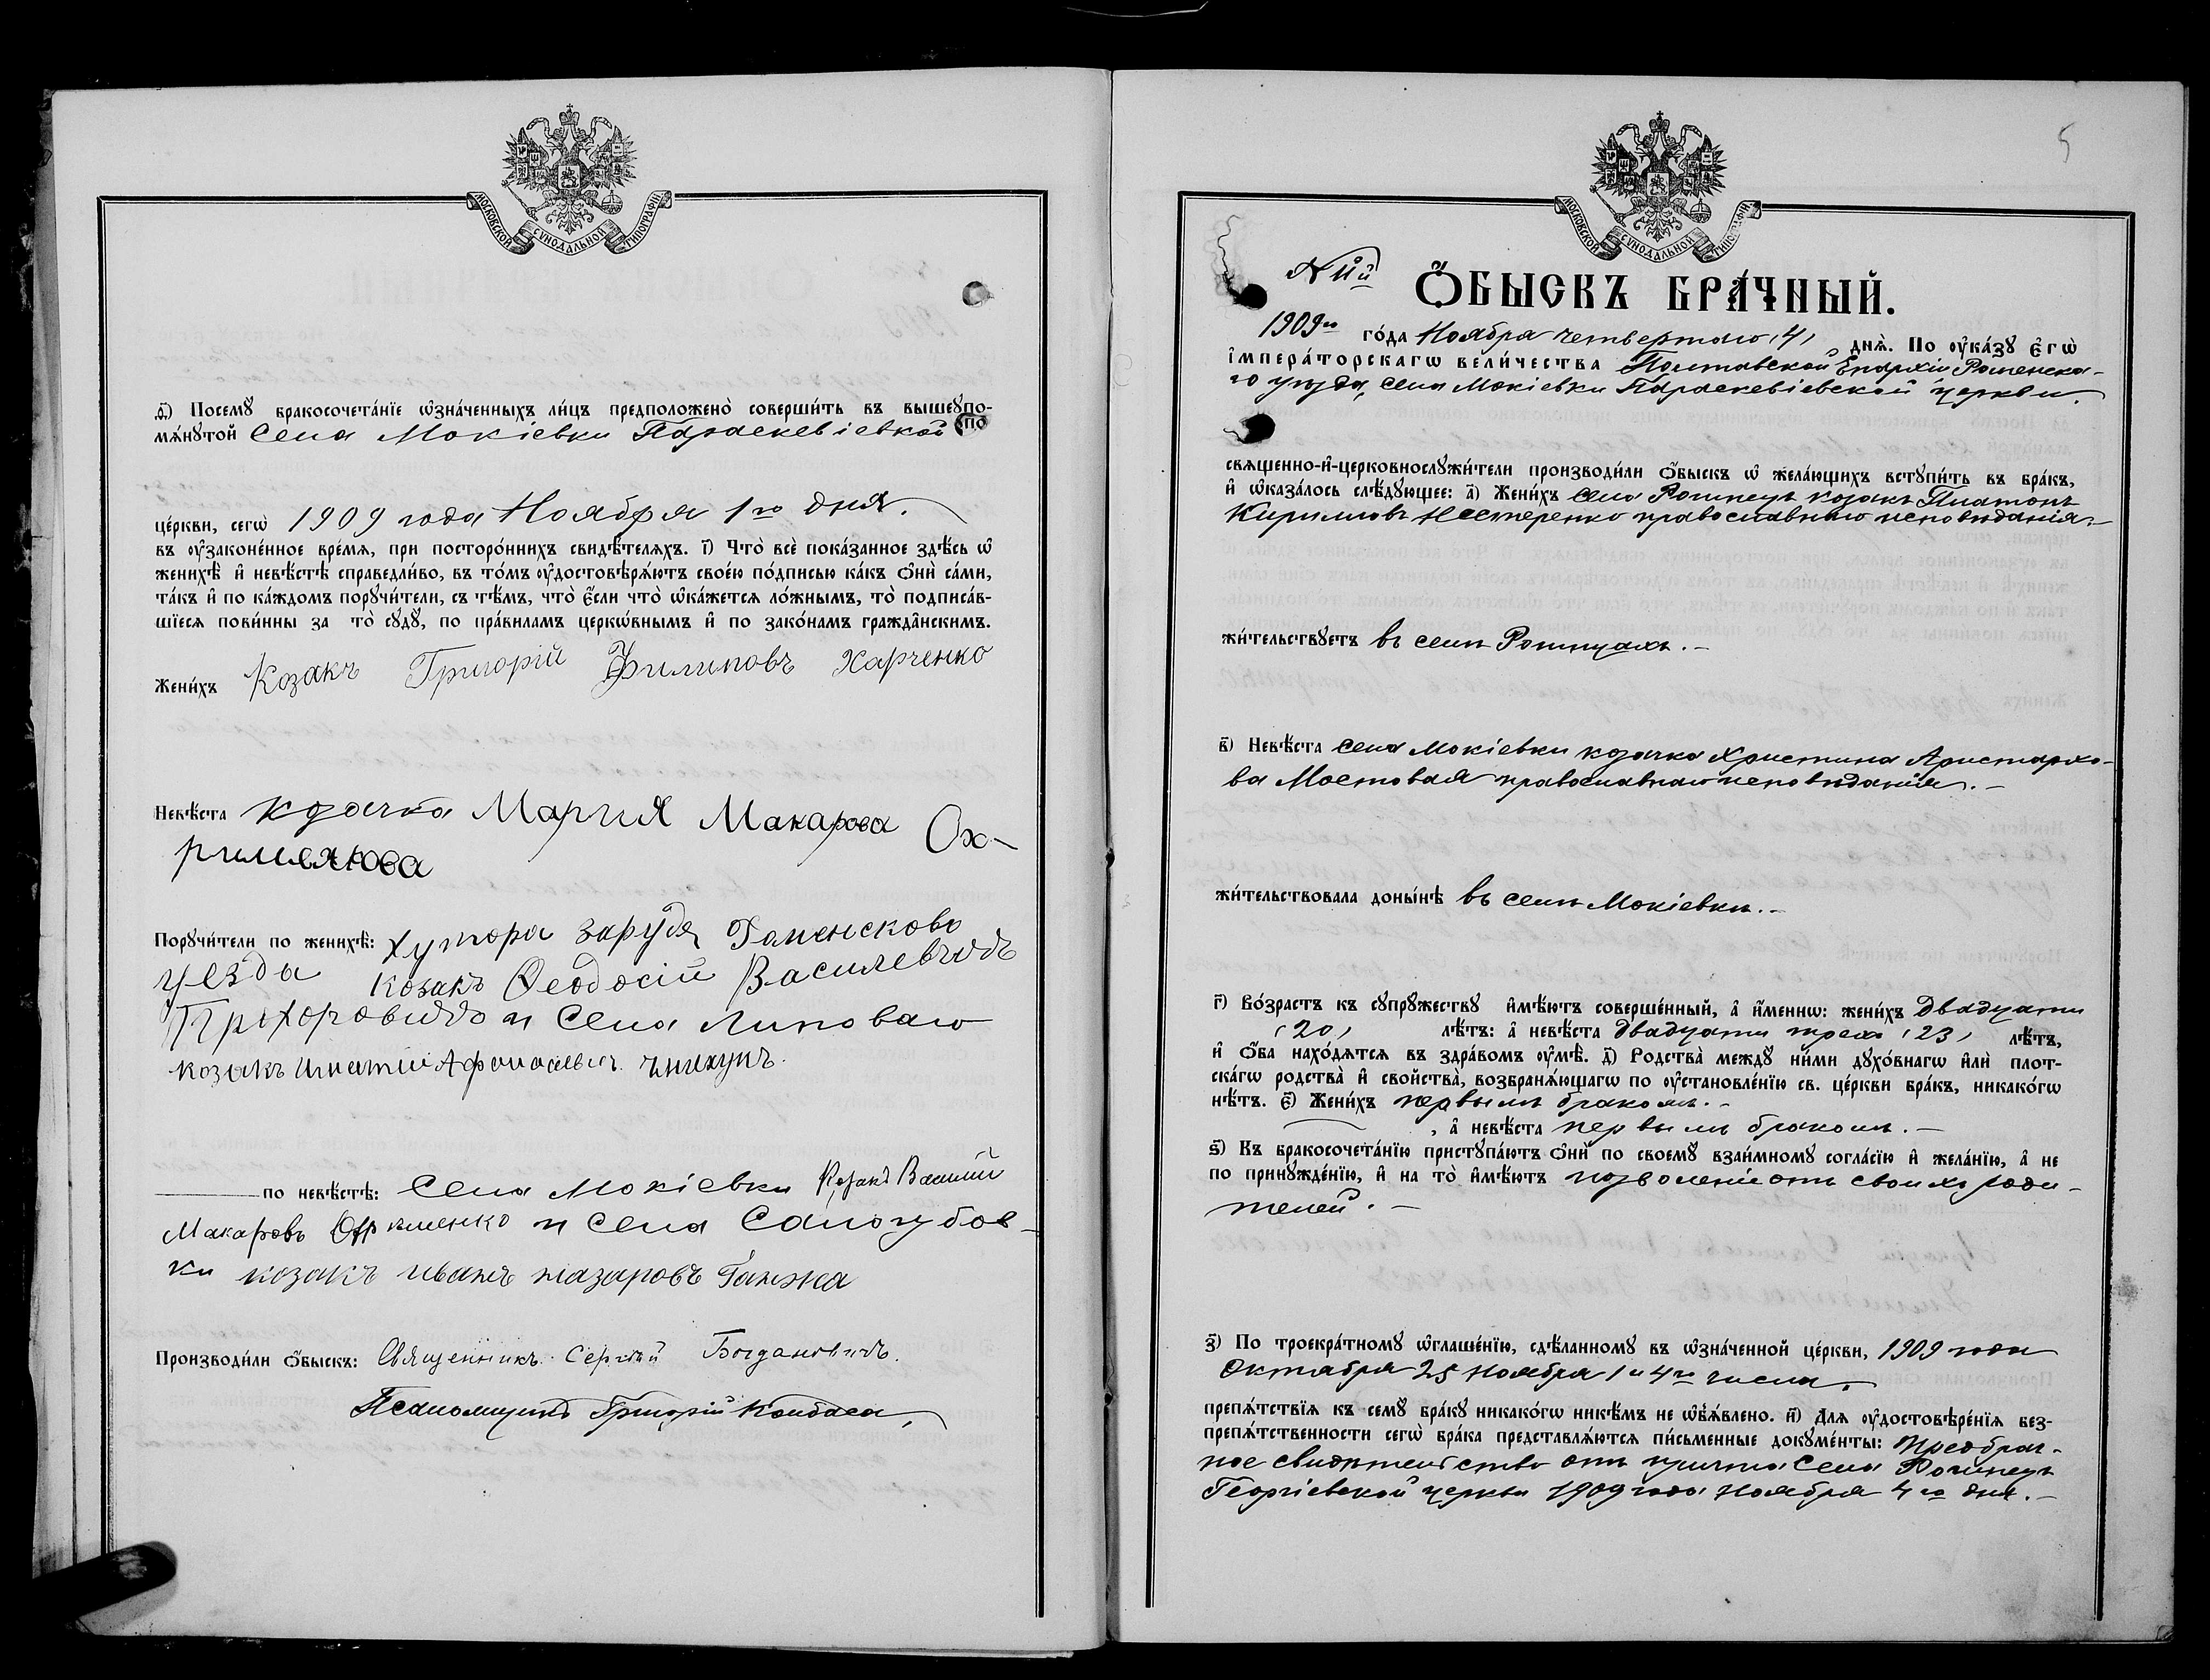 МОСКОВСКОЙ СУНОДАЛЬНОЙ ТИПОГРАФІИ
ѳ҃) Посемꙋ бракосочета́нїе ѡ҆зна́ченныхъ ли́цъ предположено̀ соверши́ть въ вышеꙋпо-
мѧ́нꙋтой Села Мокіевки Параскевіевкой
це́ркви, сегѡ̀ 1909 года Ноября 1го дня.
въ ᲂу҆зако́ненное вре́мѧ, при посторо́ннихъ свидѣ́телѧхъ. і҃) Что̀ всѐ пока́занное здѣ́сь ѡ҆
женихѣ̀ и҆ невѣ́стѣ справедли́во, въ то́мъ ᲂу҆достовѣрѧ́ютъ свое́ю по́дписью ка́къ ѻ҆нѝ са́ми,
та́къ и҆ по ка́ждомъ порꙋчи́тели, съ тѣ́мъ, что̀ є҆́сли что̀ ѡ҆ка́жетсѧ ло́жнымъ, то̀ подписа́в-
шїесѧ пови́нны за то̀ сꙋдꙋ̀, по пра́виламъ церкѡ́внымъ и҆ по зако́намъ гражда̑нскимъ.
Жени́хъ Козакъ Григорій Филиповъ Харченко
Невѣ́ста козачка Мария Макарова Ох-
рименкова
Порꙋчи́тели по женихѣ̀: Хутора Заруди Роменсково
уезда козакъ Ѳеодосій Василевъичъ
Прохоровичъ и Села Липоваго
козакъ Игнатій Афонасіевич.
по невѣ́стѣ: Села Мокіевки Козакъ Василій
Макаровъ Охрименко и Села Сапогубов-
ки козакъ иванъ назаровъ Ганжа
Производи́ли ѻ҆́быскъ: Священникъ Сергѣй Богдановичъ.
Псаломщикъ Григорій Колбаса,
5
МОСКОВСКОЙ СУНОДАЛЬНОЙ ТИПОГРАФІИ
N 11й
Ѻ҆́БЫСКЪ БРА́ЧНЫЙ.
1909го го́да Ноября четвертаго (4) днѧ̀. По ᲂу҆ка́зꙋ є҆гѡ̀
і҆мпера́торскагѡ вели́чества Полтавской Епархіи Роменска-
го уѣзда, села Мокіевки Параскевіевской церкви.
свѧщенно-и҆-церковнослꙋжи́тели производи́ли ѻ҆́быскъ ѡ҆ жела́ющихъ встꙋпи́ть въ бра́къ,
и҆ ѡ҆каза́лось слѣ́дꙋющее: а҃) Жени́хъ села козакъ Платонъ
Кириловъ Нестеренко православнаго исповѣданія.
жи́тельствꙋетъ въ селѣ
в҃) Невѣ́ста села Мокіевки козачка Христина Аристархо-
ва Мостовая православнаго исповѣданія.
жи́тельствовала доны́нѣ въ селѣ Мокіевки.
г҃) Во́зрастъ къ сꙋпрꙋ́жествꙋ и҆мѣ́ютъ соверше́нный, а҆ и҆́меннѡ: жени́хъ двадцати
(20) лѣ́тъ: а҆ невѣ́ста двадцати трехъ (23) лѣ́тъ,
и҆ ѻ҆́ба нахо́дѧтсѧ въ здра́вомъ ᲂу҆мѣ̀. д҃) Родства̀ междꙋ̀ ни́ми дꙋхо́внагѡ и҆лѝ плот-
ска́гѡ родства̀ и҆ свойства̀, возбранѧ́ющагѡ по ᲂу҆становле́нїю св. це́ркви бра́къ, никако́гѡ
нѣ́тъ. є҃) Жени́хъ первымъ бракомъ.
, а҆ невѣ́ста первымъ бракомъ.
ѕ҃) Къ бракосочета́нїю пристꙋпа́ютъ ѻ҆нѝ по своемꙋ̀ взаи́мномꙋ согла́сїю и҆ жела́нїю, а҆ не
по принꙋжде́нїю, и҆ на то̀ и҆мѣ́ютъ позволеніе отъ своихъ роди-
телей.
з҃) По троекра́тномꙋ ѡ҆глаше́нїю, сдѣ́ланномꙋ въ ѡ҆зна́ченной це́ркви, 1909 года
Октября 25 Ноября 1 и 4го числа.
препѧ́тствїѧ къ семꙋ̀ бра́кꙋ никако́гѡ никѣ́мъ не ѡ҆б̾ѧ́влено. и҃) Длѧ ᲂу҆достовѣре́нїѧ без-
препѧ́тственности сегѡ̀ бра́ка представлѧ́ютсѧ пи́сьменные докꙋме́нты: Предбрач-
ное свидѣтельство отъ причта села
Георгіевской церкви 1909 года Ноября 4го дня.